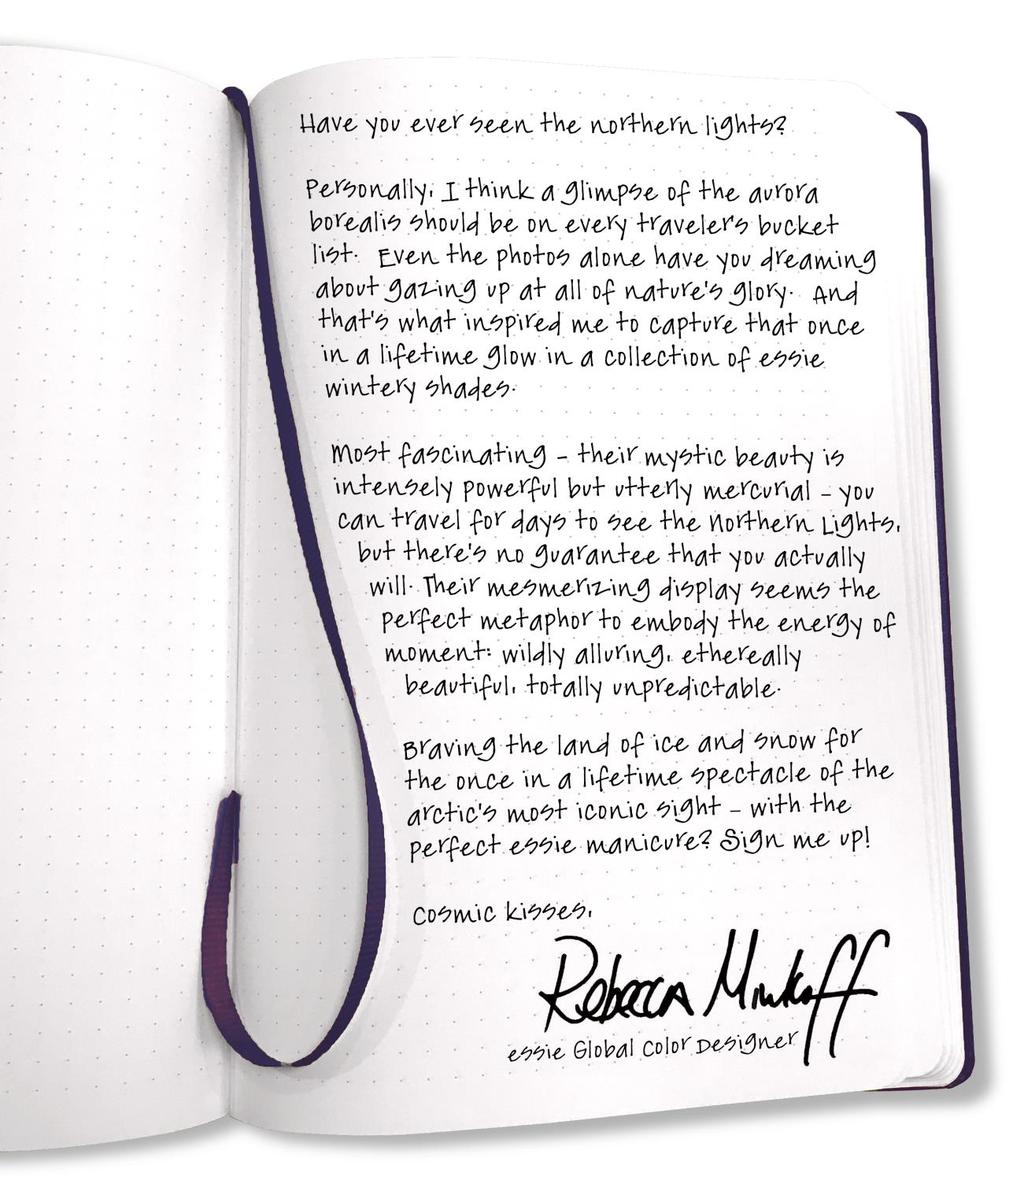 Have you ever seen the northern lights?
Personally, I think a glimpse of the aurora
borealis should be on every traveler's bucket
list. Even the photos alone have you dreaming
about gazing up at all of nature's glory. And
that's what inspired me to capture that once
in a lifetime glow in a collection of essie
wintery shades.
Most fascinating – their mystic beauty is
intensely powerful but utterly mercurial – you
can travel for days to see the Northern Lights,
but there's no guarantee that you actually
will. Their mesmerizing display seems the
perfect metaphor to embody the energy of
moment: wildly alluring, ethereally
beautiful, totally unpredictable.
Braving the land of ice and snow for
the once in a lifetime spectacle of the
arctic's most iconic sight – with the
perfect essie manicure? Sign me up!
Cosmic kisses,
Rebecca Minkoff
essie Global Color Designer